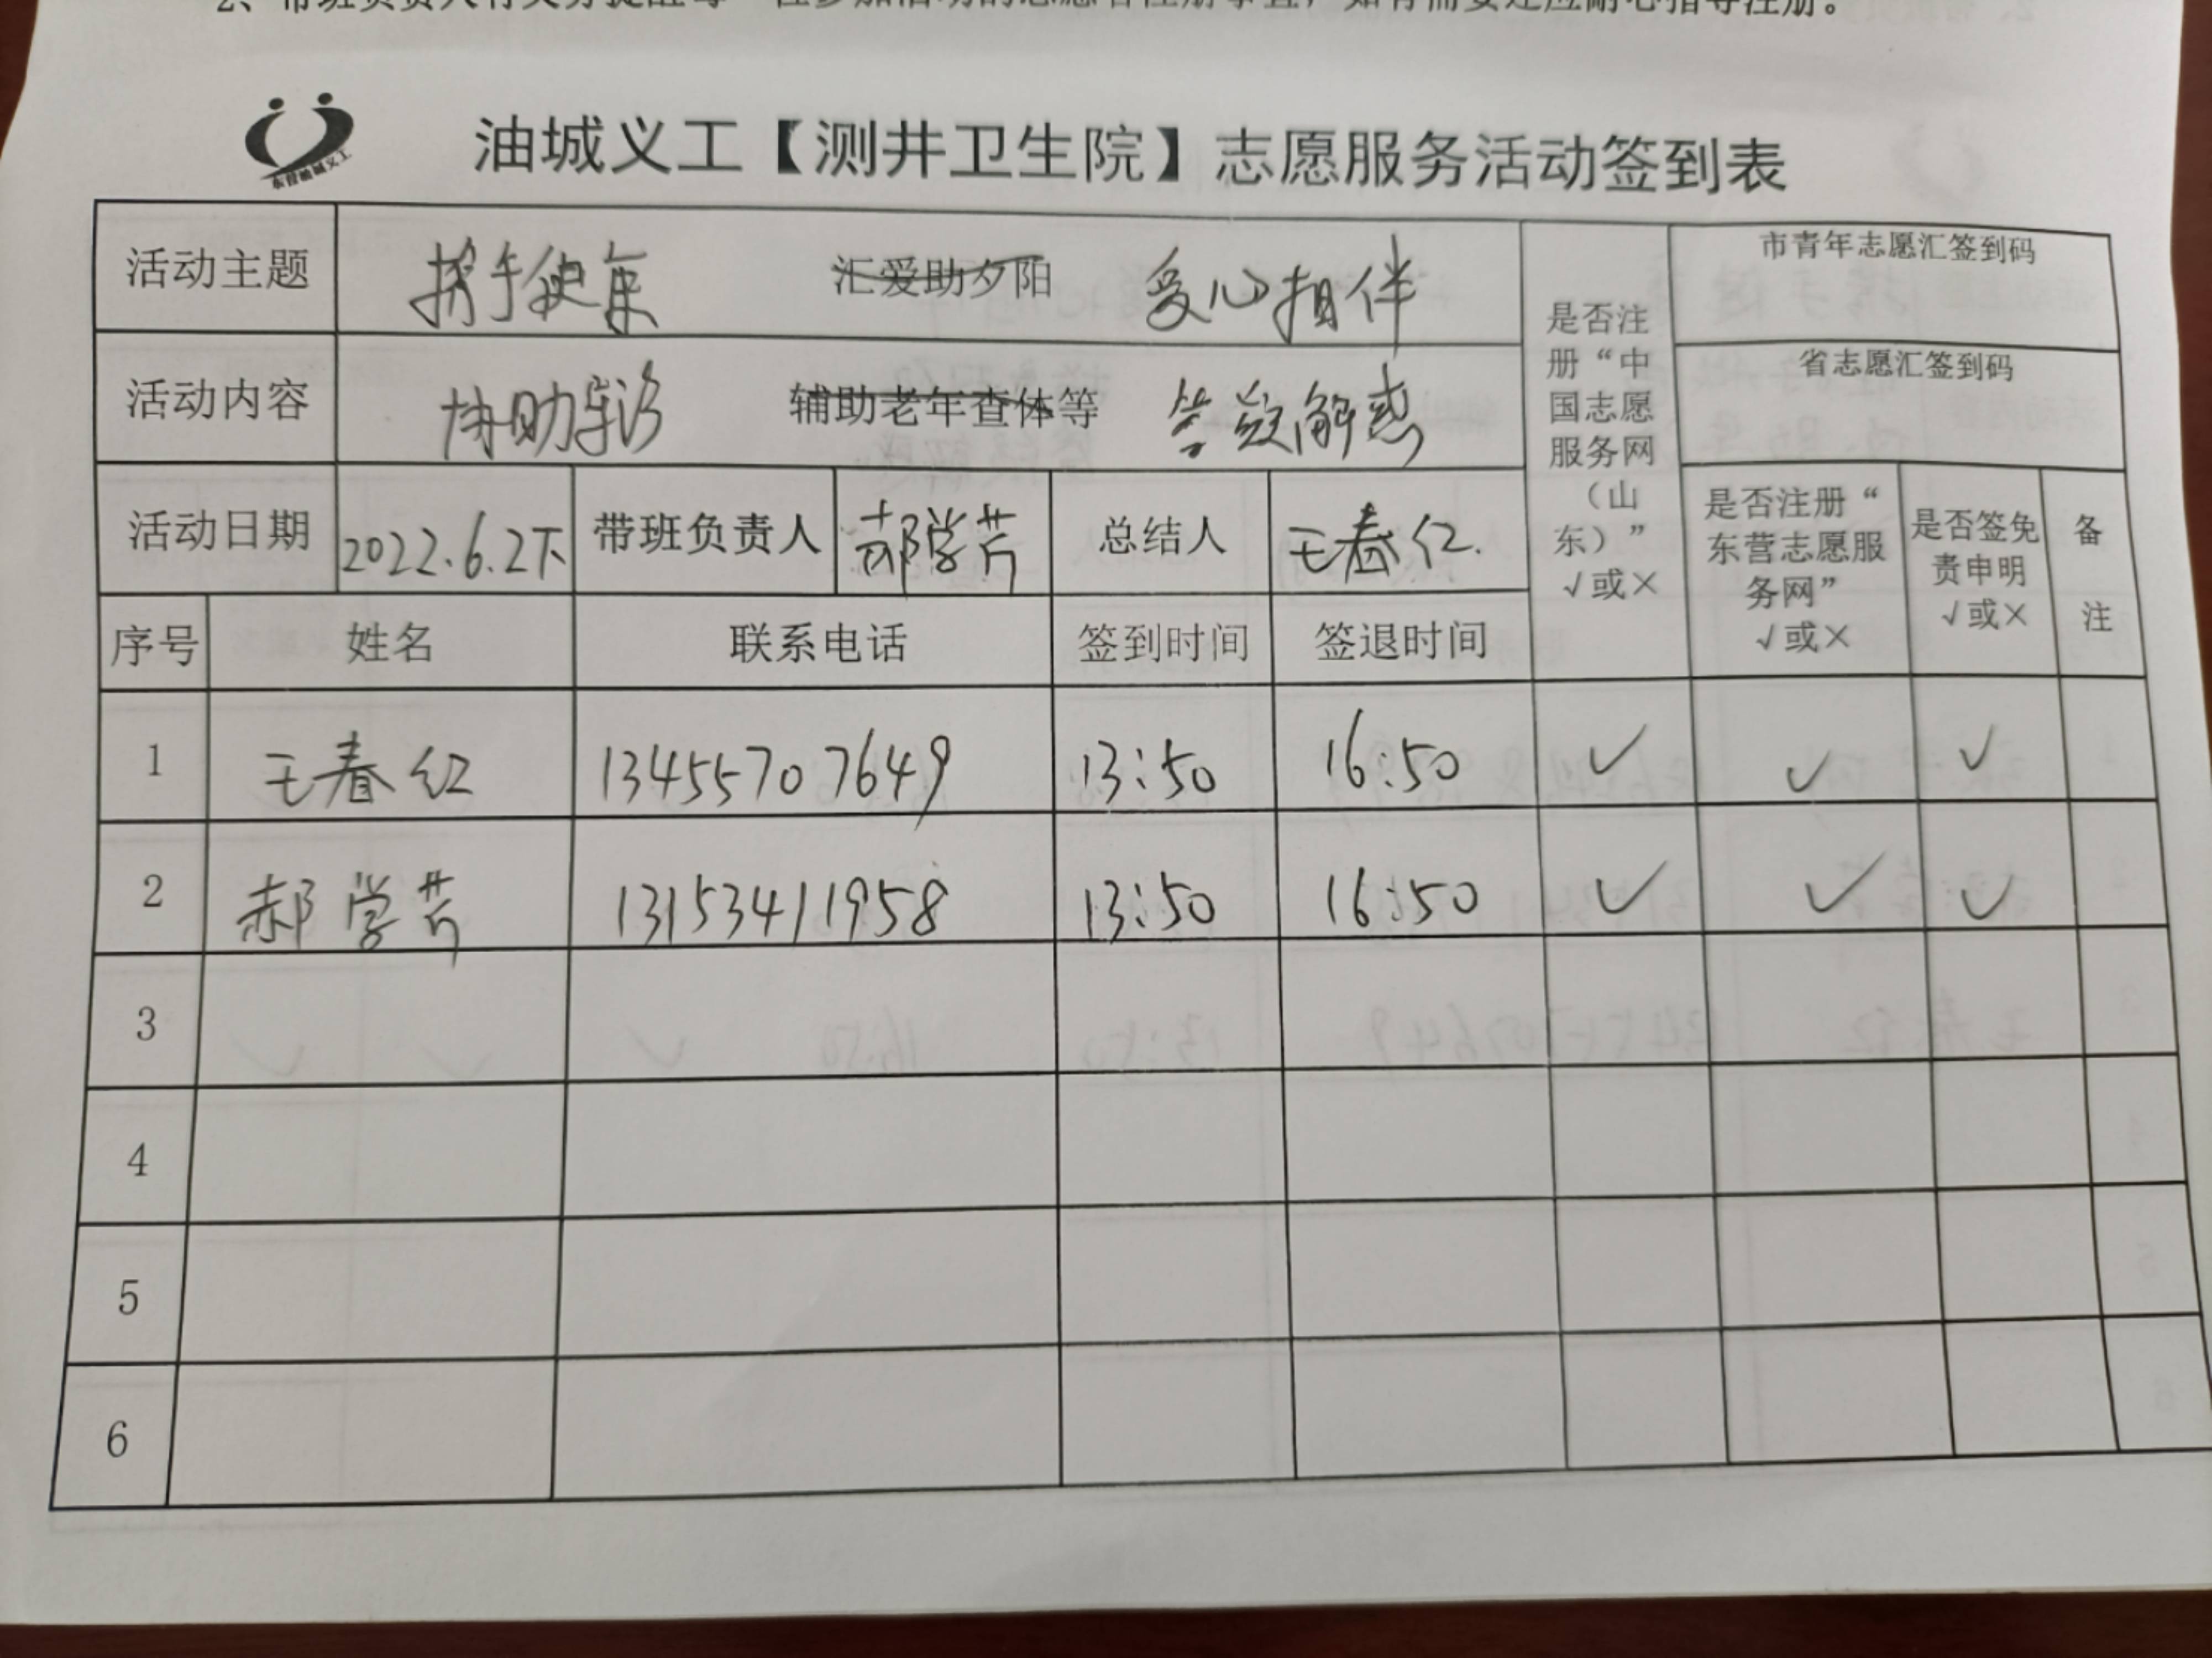 油城义工【测井卫生院】志愿服务活动签到表
东营油城义工
活动主题 携手健康 汇爱助夕阳 爱心相伴
市青年志愿汇签到码
活动内容 协助 辅助老年查体等 答疑解惑
省志愿汇签到码
是否注
册“中
国志愿
服务网
（山
东）”
√或×
活动日期 2022.6.2下 带班负责人 郝学芳 总结人 王春红.
是否注册“
东营志愿服
务网”
√或×
是否签免
责申明
√或×
备
注
序号 姓名 联系电话 签到时间 签退时间
1 王春红 13455707649 13:50 16:50 ✓ ✓ ✓
2 郝学芳 13153411958 13:50 16:50 ✓ ✓ ✓
3
4
5
6